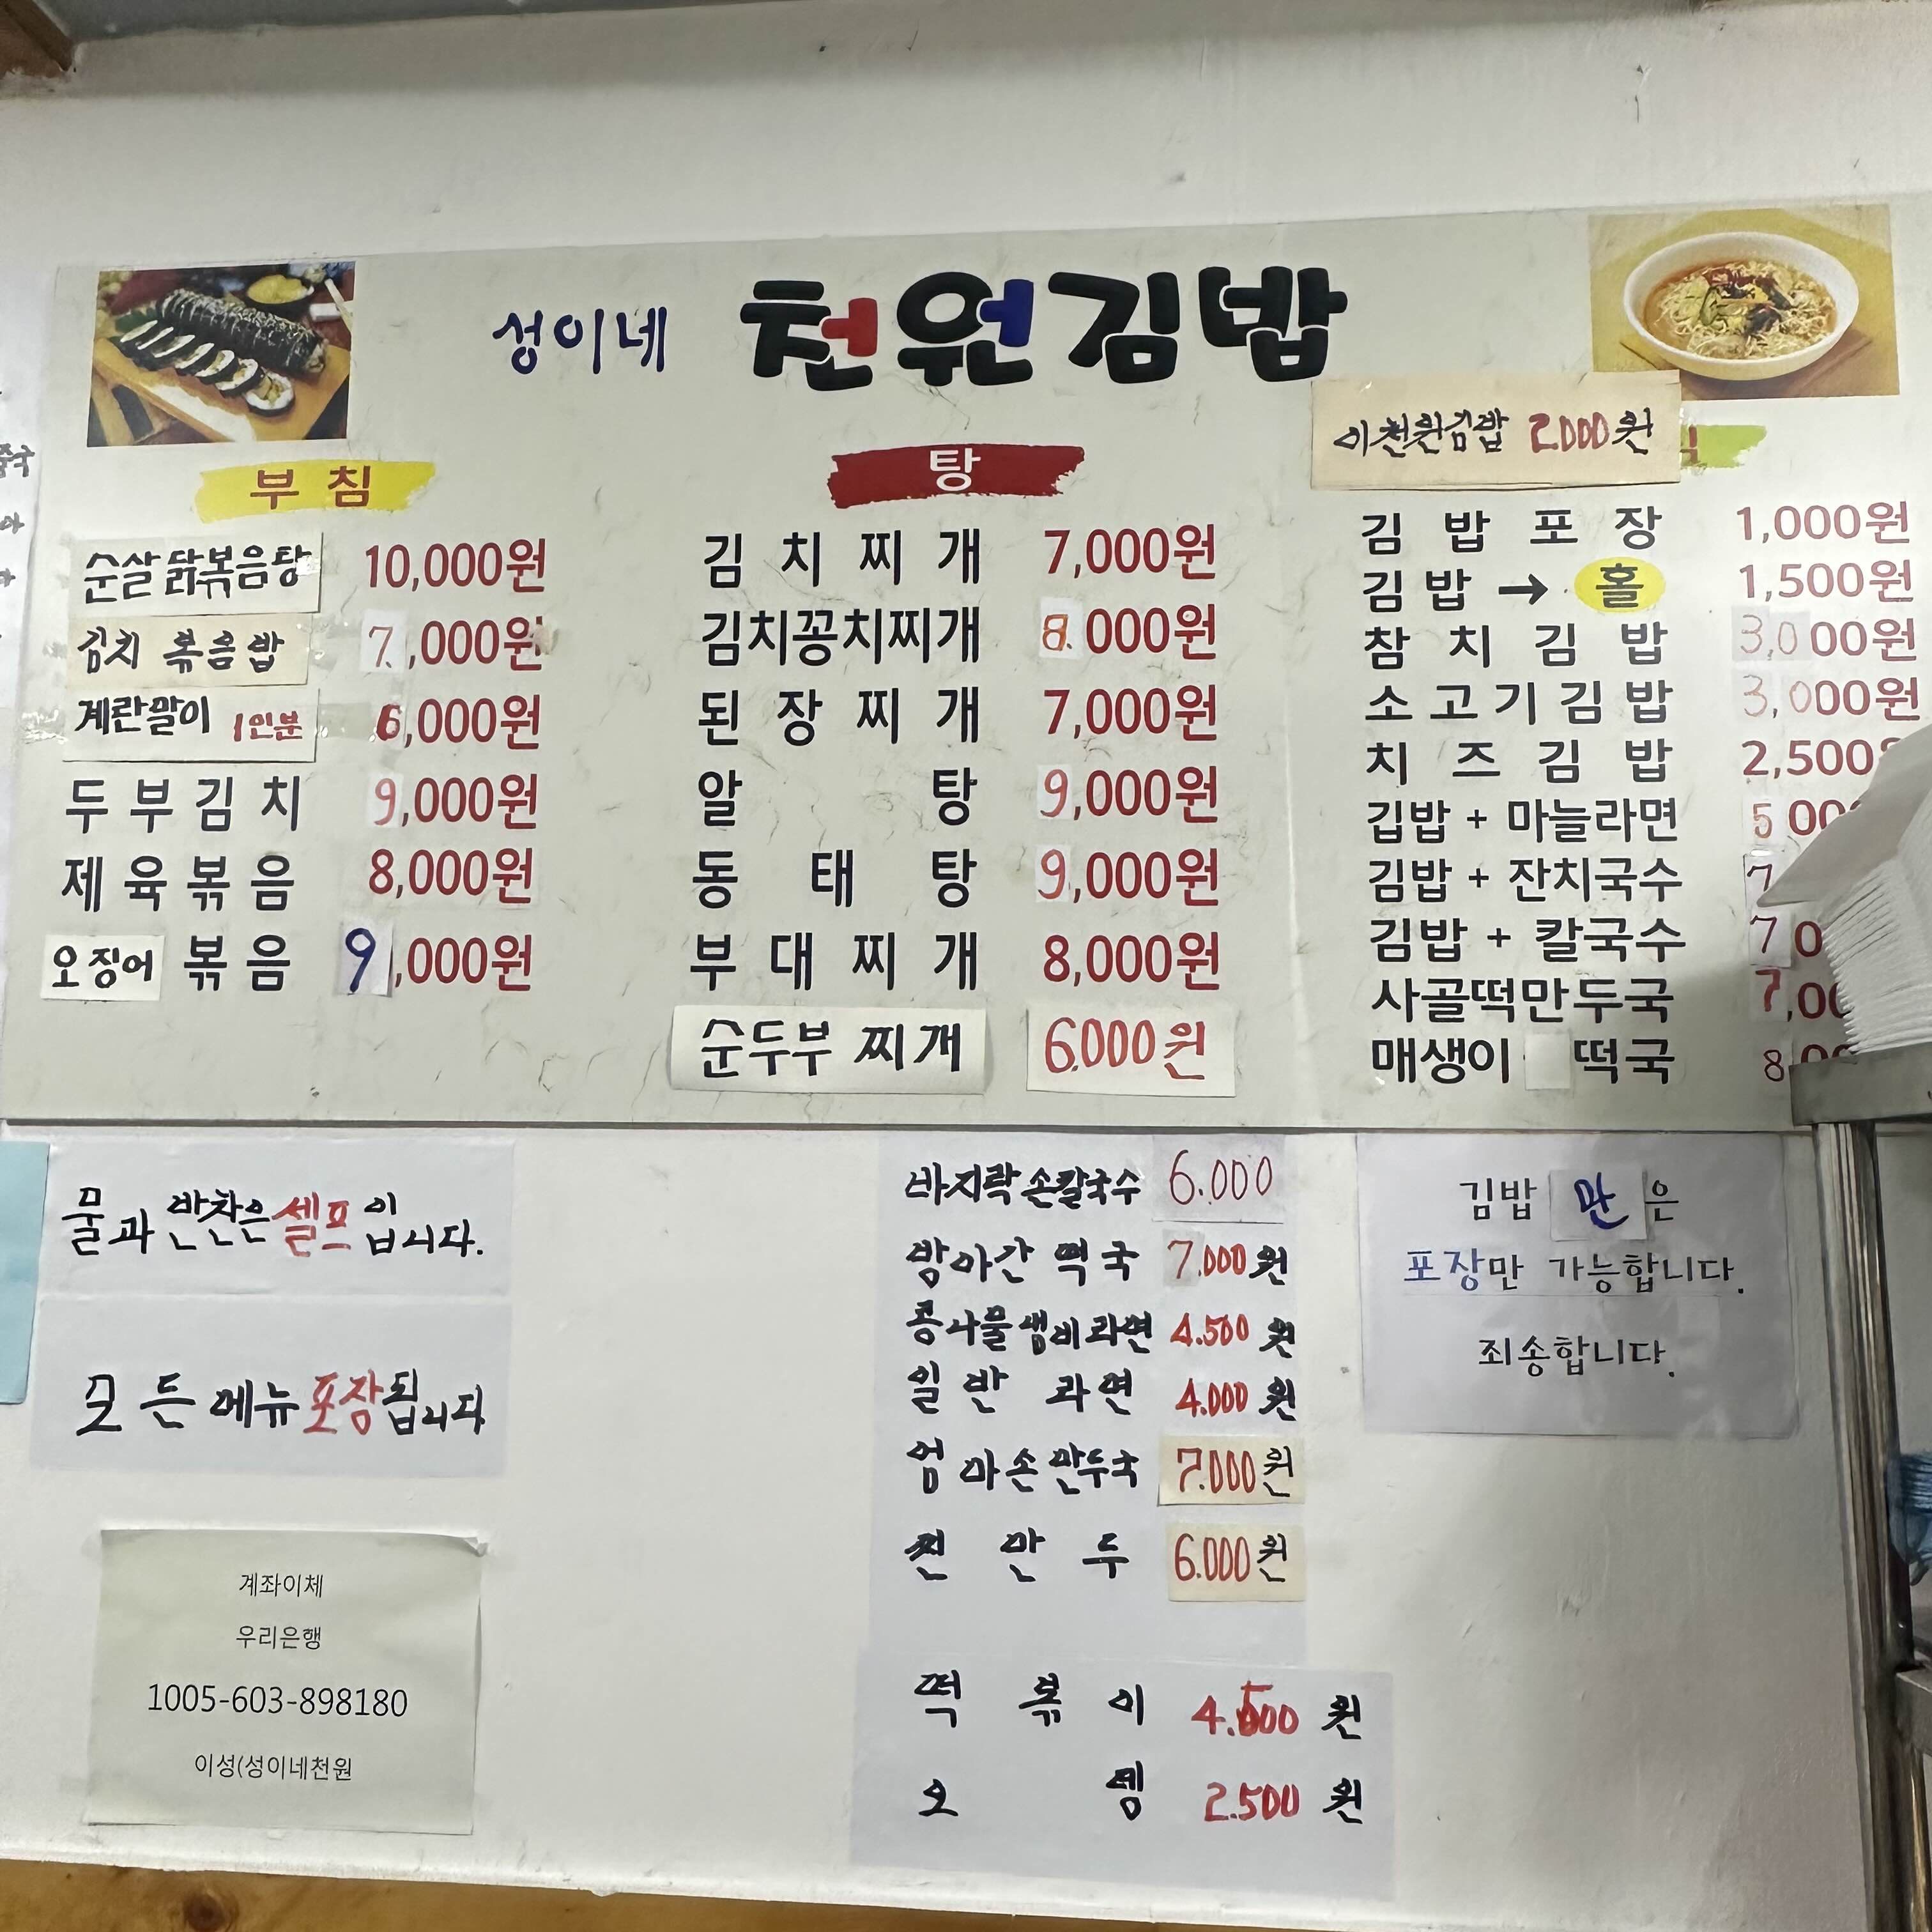 성이네 천원김밥
이천원김밥 2000원
부침
순살닭볶음탕 10,000원
김치 볶음밥 7,000원
계란말이 1인분 6,000원
두부김치 9,000원
제육볶음 8,000원
오징어 볶음 9,000원
탕
김치찌개 7,000원
김치꽁치찌개 8.000원
된장찌개 7,000원
알탕 9,000원
동태탕 9,000원
부대찌개 8,000원
순두부 찌개 6.000원
김밥포장 1,000원
김밥 → 홀 1,500원
참치김밥 3,000원
소고기김밥 3,000원
치즈김밥 2,500
김밥 + 마늘라면 5
김밥 + 잔치국수 7
김밥 + 칼국수 7
사골떡만두국 7,00
매생이 떡국 8
물과 반찬은 셀프입니다.
모든 메뉴 포장됩니다
계좌이체
우리은행
1005-603-898180
이성(성이네천원
바지락 손칼국수 6.000
방아간 떡국 7.000원
콩나물 냄비라면 4.500원
일반 라면 4.000원
엄마손만두국 7.000원
찐만두 6.000원
떡볶이 4.500원
오뎅 2.500원
김밥 만 은
포장만 가능합니다.
죄송합니다.